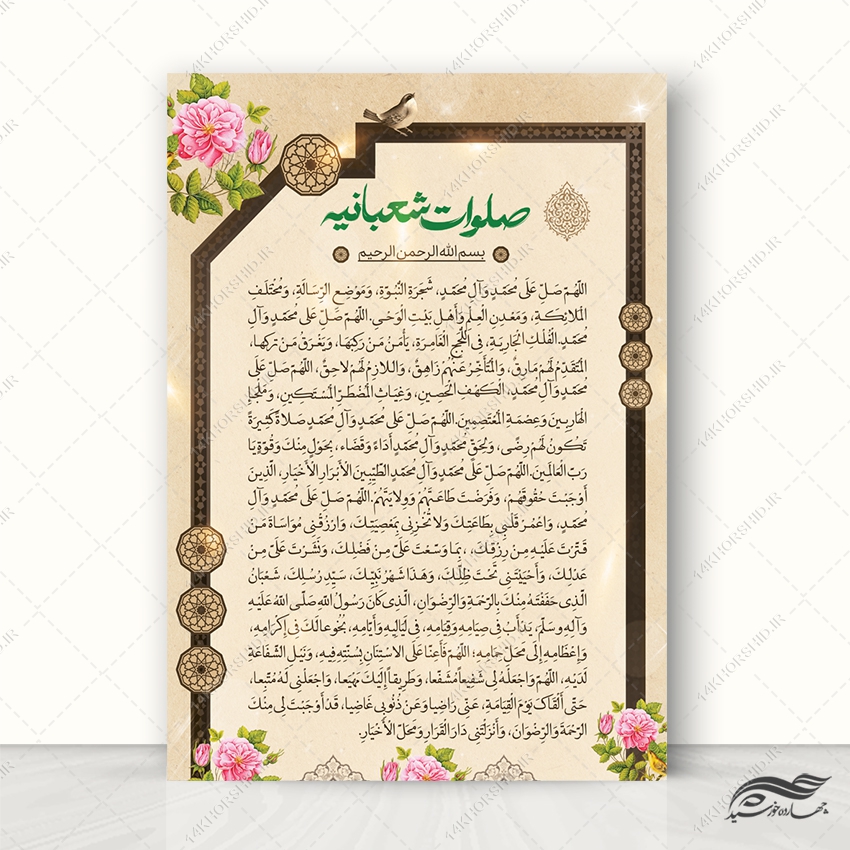 صلوات شعبانیه
بسم الله الرحمن الرحیم
اللّهُمَّ صَلِّ عَلَى مُحَمَّدٍ وَآلِ مُحَمَّدٍ، شَجَرَةِ النُّبُوَّةِ، وَمَوْضِعِ الرِّسَالَةِ، وَمُخْتَلَفِ
الْمَلَائِكَةِ، وَمَعْدِنِ الْعِلْمِ وَأَهْلِ بَيْتِ الْوَحْيِ. اللّهُمَّ صَلِّ عَلَى مُحَمَّدٍ وَآلِ
مُحَمَّدٍ الْفُلْكِ الْجَارِيَةِ، فِي اللُّجَجِ الْغَامِرَةِ، يَأْمَنُ مَنْ رَكِبَهَا، وَيَغْرَقُ مَنْ تَرَكَهَا،
الْمُتَقَدِّمُ لَهُمْ مَارِقٌ، وَالْمُتَأَخِّرُ عَنْهُمْ زَاهِقٌ، وَاللَّازِمُ لَهُمْ لَاحِقٌ، اللّهُمَّ صَلِّ عَلَى
مُحَمَّدٍ وَآلِ مُحَمَّدٍ، الْكَهْفِ الْحَصِينِ، وَغِيَاثِ الْمُضْطَرِّ الْمُسْتَكِينِ، وَمَلْجَإِ
الْهَارِبِينَ وَعِصْمَةِ الْمُعْتَصِمِينَ. اللّهُمَّ صَلِّ عَلَى مُحَمَّدٍ وَآلِ مُحَمَّدٍ صَلَاةً كَثِيرَةً
تَكُونُ لَهُمْ رِضًى، وَلِحَقِّ مُحَمَّدٍ وَآلِ مُحَمَّدٍ أَدَاءً وَقَضَاء، بِحَوْلٍ مِنْكَ وَقُوَّةٍ يَا
رَبَّ الْعَالَمِينَ. اللّهُمَّ صَلِّ عَلَى مُحَمَّدٍ وَآلِ مُحَمَّدٍ الطَّيِّبِينَ الْأَبْرَارِ الْأَخْيَارِ، الَّذِينَ
أَوْجَبْتَ حُقُوقَهُمْ، وَفَرَضْتَ طَاعَتَهُمْ وَوِلَايَتَهُمْ. اللّهُمَّ صَلِّ عَلَى مُحَمَّدٍ وَآلِ
مُحَمَّدٍ، وَاعْمُرْ قَلْبِي بِطَاعَتِكَ وَلَا تُخْزِنِي بِمَعْصِيَتِكَ، وَارْزُقْنِي مُوَاسَاةَ مَنْ
قَتَّرْتَ عَلَيْهِ مِنْ رِزْقِكَ، ، بِمَا وَسَّعْتَ عَلَيَّ مِنْ فَضْلِكَ، وَنَشَرْتَ عَلَيَّ مِنْ
عَدْلِكَ، وَأَحْيَيْتَنِي تَحْتَ ظِلِّكَ، وَهَذَا شَهْرُ نَبِيِّكَ، سَيِّدِ رُسُلِكَ، شَعْبَانُ
الَّذِي حَفَفْتَهُ مِنْكَ بِالرَّحْمَةِ وَالرِّضْوَانِ، الَّذِي كَانَ رَسُولُ اللهِ صَلَّى اللهُ عَلَيْهِ
وَآلِهِ وَسَلَّمَ، يَدْأَبُ فِي صِيَامِهِ وَقِيَامِهِ، فِي لَيَالِيهِ وَأَيَّامِهِ، بُخُوعًا لَكَ فِي إِكْرَامِهِ،
وَإِعْظَامِهِ إِلَى مَحَلِّ حِمَامِهِ؛ اللّهُمَّ فَأَعِنَّا عَلَى الِاسْتِنَانِ بِسُنَّتِهِ فِيهِ، وَنَيْلِ الشَّفَاعَةِ
لَدَيْهِ، اللّهُمَّ وَاجْعَلْهُ لِي شَفِيعاً مُشَفَّعا، وَطَرِيقاً إِلَيْكَ مَهْيَعا، وَاجْعَلْنِي لَهُ مُتَّبِعا،
حَتَّى أَلْقَاكَ يَوْمَ الْقِيَامَةِ، عَنِّي رَاضِيا وَعَنْ ذُنُوبِي غَاضِيا، قَدْ أَوْجَبْتَ لِي مِنْكَ
الرَّحْمَةَ وَالرِّضْوَانَ، وَأَنْزَلْتَنِي دَارَ الْقَرَارِ وَمَحَلَّ الْأَخْيَارِ.
چهارده خورشید
14KHORSHID.IR